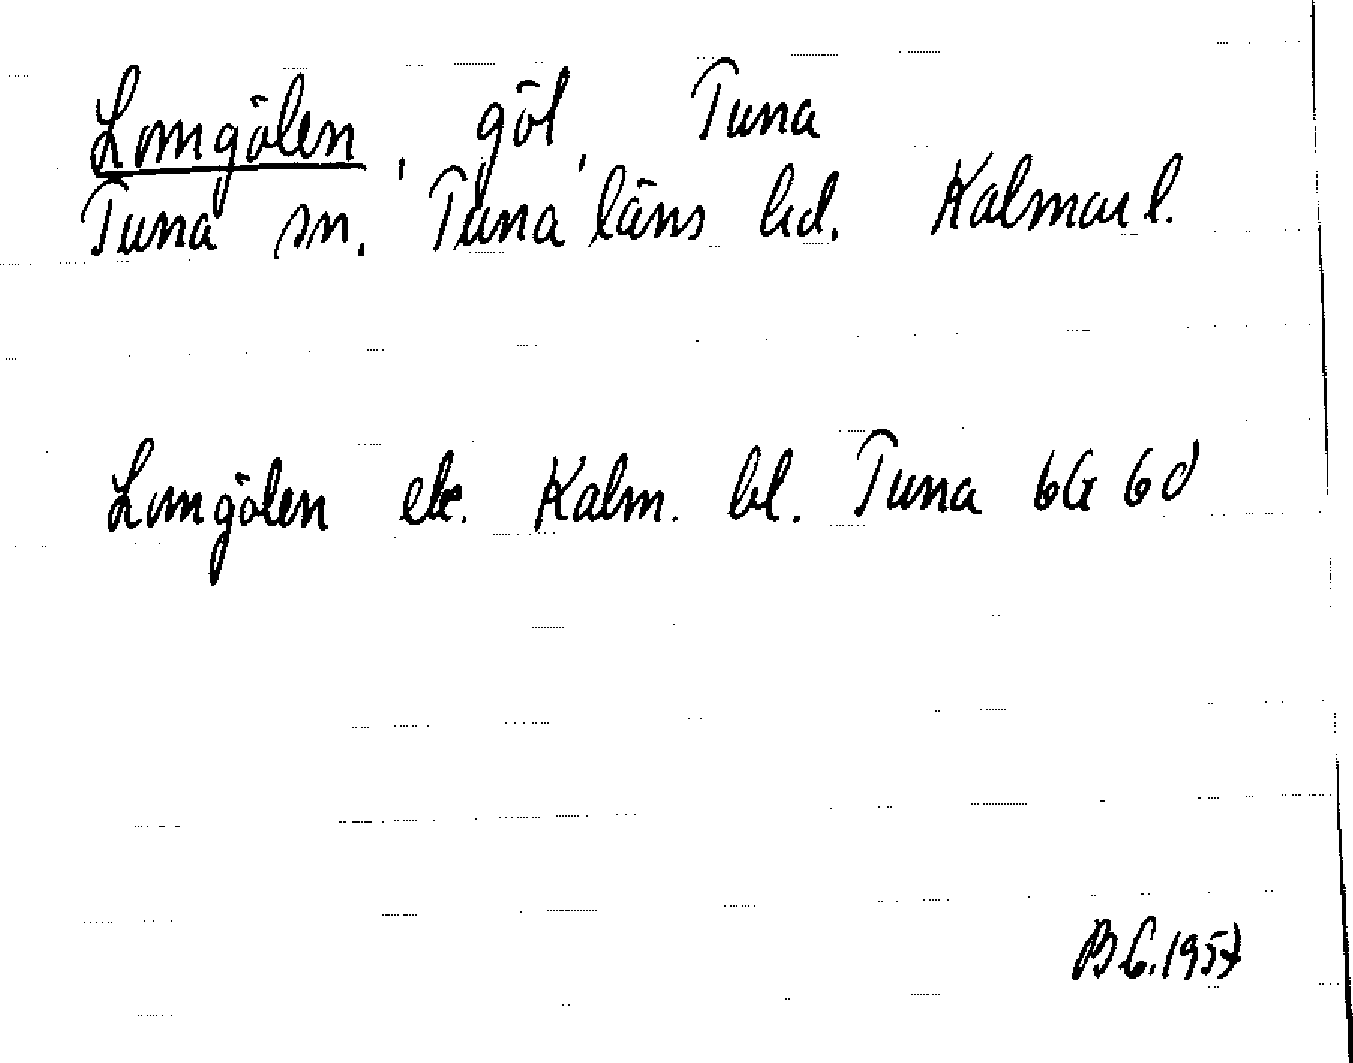 Lomgölen, göl, Tuna
Tuna sn. Tuna läns hd. Kalmar l.
Lomgölen ek. Kalm. bl. Tuna 6G 6d
B G. 1957